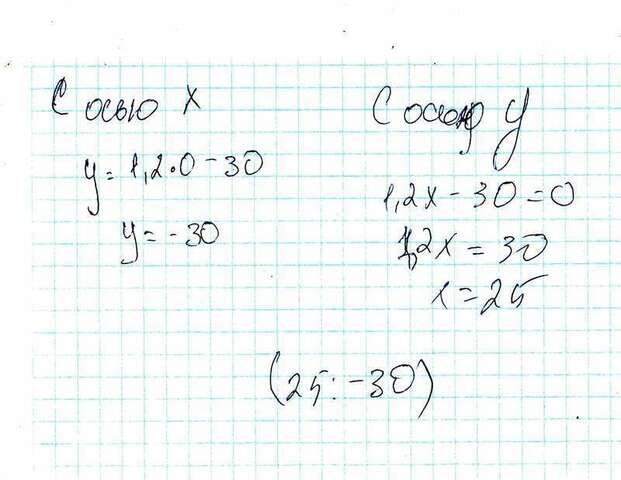 С осью x
y = 1,2•0 - 30
y = - 30
С осью y
1,2x - 30 = 0
1,2x = 30
x = 25
(25: -30)